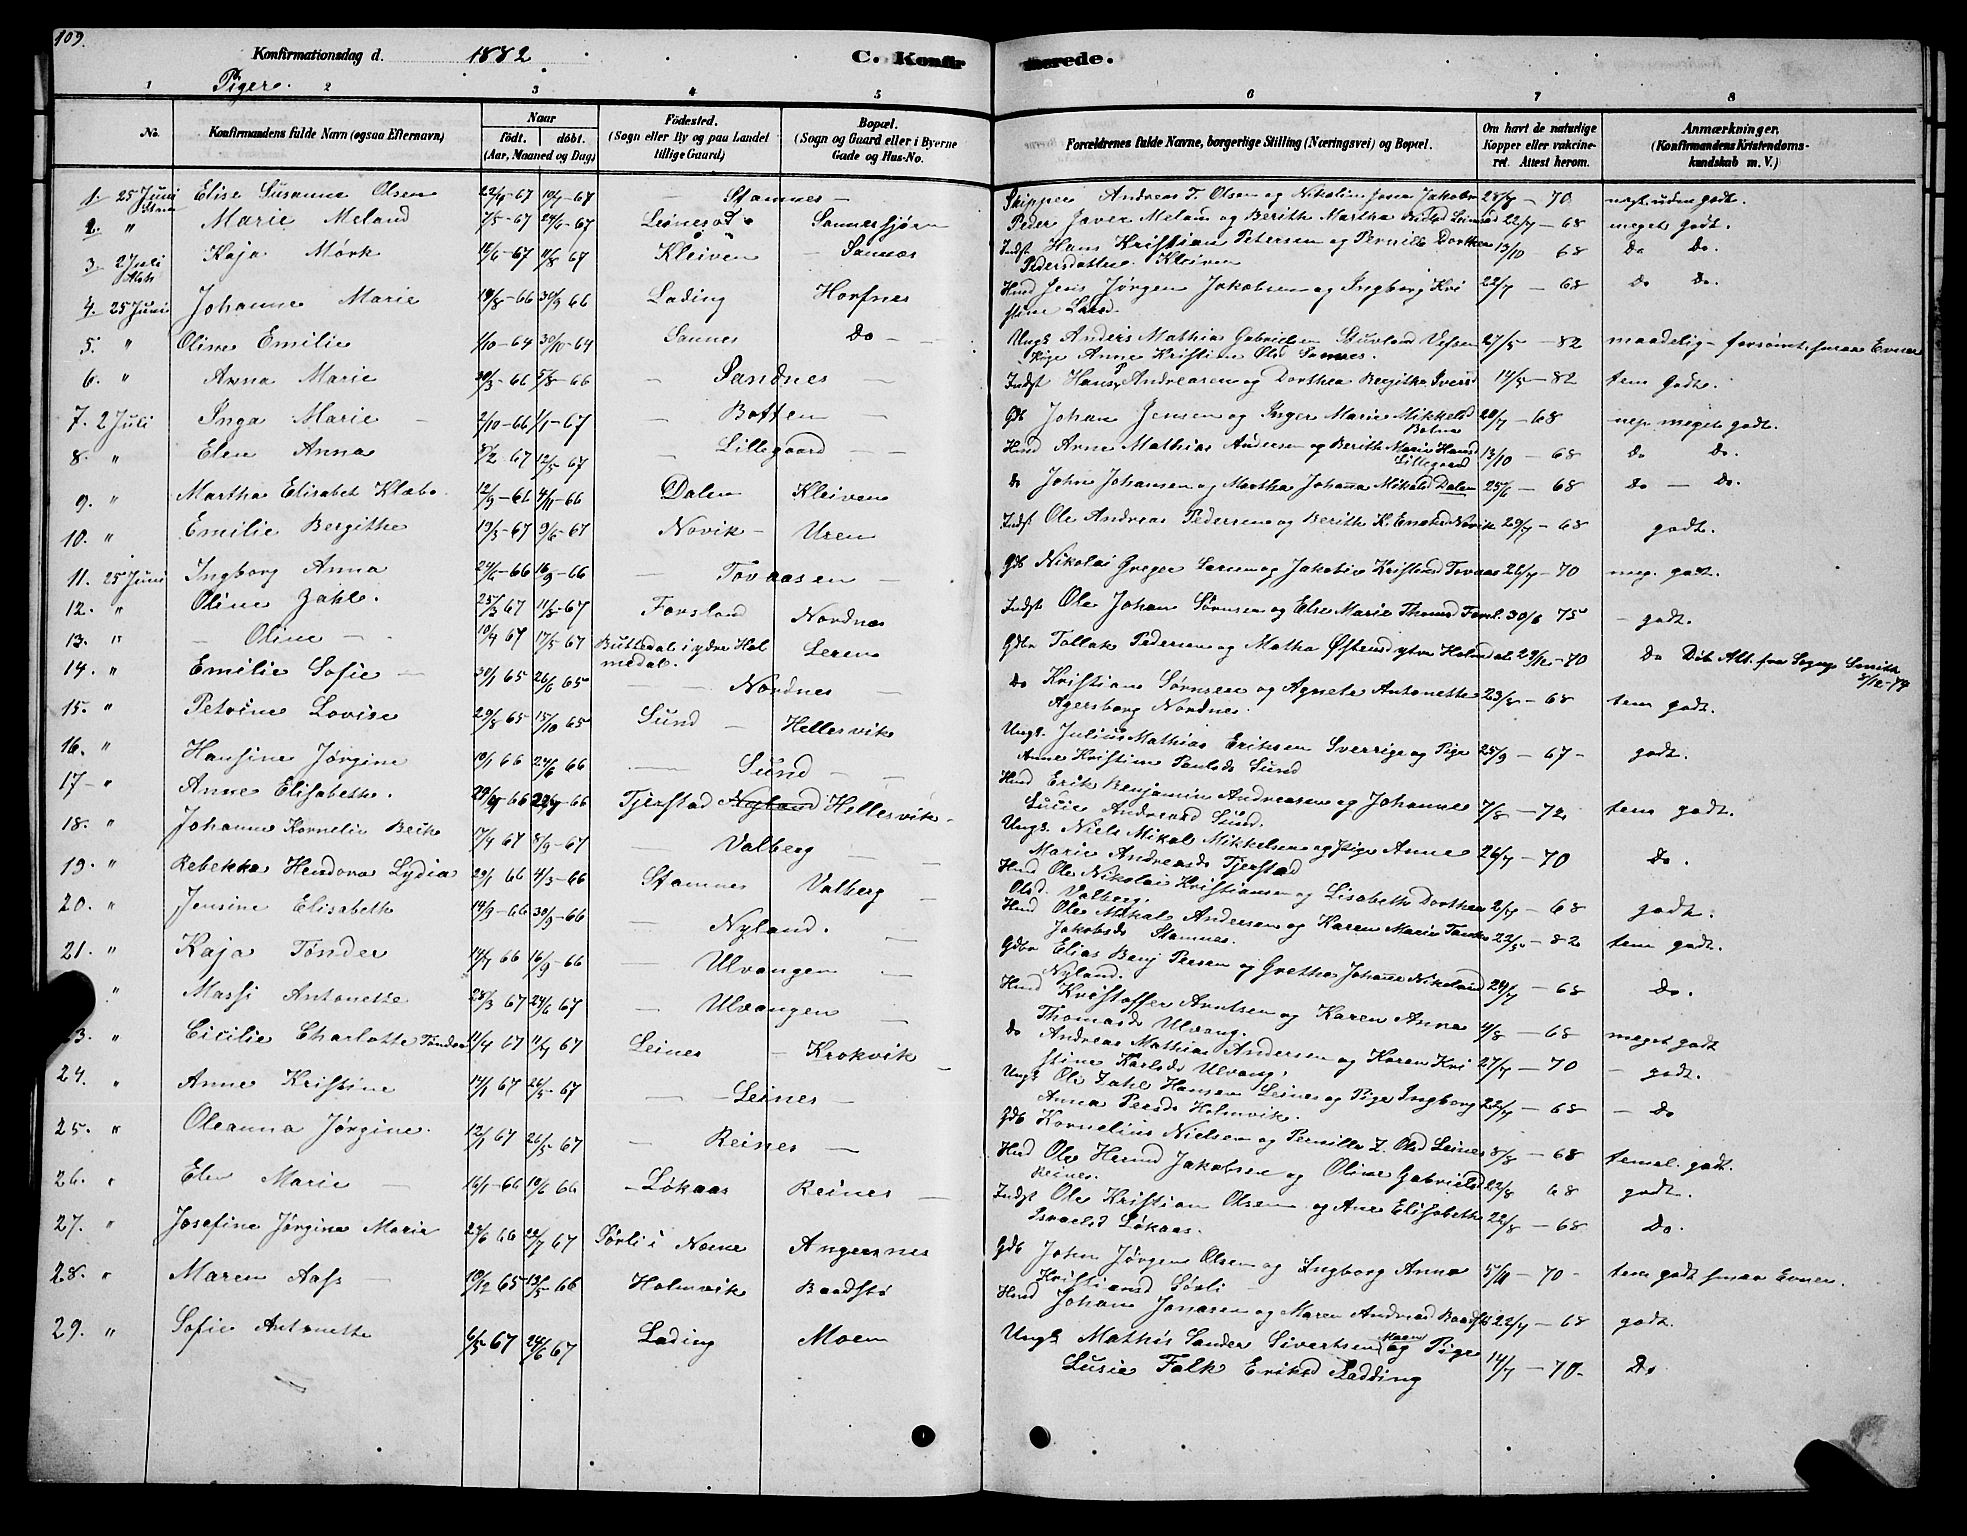 109.
Konfirmationsdag d. 1882 C. Konfirmerede.
Piger.
1 2 3 4 5 6 7 8
No. Konfirmandens fulde Navn (ogsaa Efternavn) Naar født. døbt. (Aar, Maaned og Dag) Fødested. (Sogn eller By og paa Landet tillige Gaard) Bopæl. (Sogn og Gaard eller i Byerne Gade og Hus-No. Forældrenes fulde Navne, borgerlige Stilling (Næringsvei) og Bopæl. Om havt de naturlige Kopper eller vakcineret. Attest herom. Anmærkninger. (Konfirmandens Kristendomskundskab m. V.)
1. 25 Juni Elise Susanne Olsen 22/4-67 10/7-67 — Stamnes — Skipper Andreas T. Olsen og Nikolin Jakobs 28/8-70 godt.
2. " Marie Meland 7/5-67 24/6-67 Leinesodd Sannesjøen Peder Javer Melan og Berith Martha Leines 22/7-68 megets godt.
3 2 Juli Kaja Mørk 14/6-67 11/8 67 Kleiven — Sannes Indst Hans Kristian Petersen og Pernille Dorthea Pedersdatter Kleiven 13/10 68 Do Do.
4. 25 Juni Johanne Marie 19/8-66 30/9 66 Lading Horfnes Hmd Jens Jørgen Jakobsen og Ingborg Kristine Larsd. 22/7-68 Do Do.
5. " Oline Emilie 1/10-64 30/10-64 Sannes Do — Ungk Anders Mathias Gabrielsen Stuvland Vefsen Pige Anne Kristian Olsd Sannes. 27/5-82 maadelig forsømt smaa Evner
6. " Anna Marie 30/3-66 5/8-66 — Sandnes — Indst Hans P Andreasen og Dorthea Bergithe Iversd 14/5-82 tem godt.
7. 2 Juli Inga Marie — 2/10-66 1/1-67 — Botten — Gb Johan Jensen og Inger Marie Mikkelsd Botne 20/7-68 nep meget godt.
8. " Elen Anna 8/2 67 12/5-67 — Lillegaard — — Hmd Arne Mathias Andersen og Berith Marie Hansd Lillegaard 13/10-68 Do Do.
9. " Martha Elisabet Klæbo. 12/9-66 4/11-66 Dalen Kleiven do John Johansen og Martha Johanna Mikalsd Dalen 25/6-68 Do — Do.
10. " Emilie Bergithe 19/3-67 9/6-67 Novik — Uren Indst Ole Andreas Pedersen og Berith K. Novik 29/7-68 godt.
11. 25 Juni Ingborg Anna 24/6-66 16/9-66 — Tovaasen — Gb Nikolai Greger Larsen og Jakobin Kristensd Tovaas 26/7-70 meg. godt.
12. " Oline Zahl. 25/3 67 11/8-67 Forsland Nordnes Indst Ole Johan Sørnsen og Else Marie Thomsd Forsl. 30/6 75 — godt.
13. " — Oline — 10/4 67 17/5 67 Buttedal i ydre Holmedal. Leren Gdbr Tollak Pedersen og Matha Østensd ytre Holmdal 29/12-70 Do Døb Att. fra Sognp Smith 8/12-79
14. " Emilie Sofie — 30/1 65 26/6 65 — — Nordnes — Do Kristian Sørnsen og Agnete Antonette Agersborg Nordnes. 23/8-68 tem godt.
15. " Petrine Lovise 29/8 65 15/10 65 Sund — Hellesvik Ungk. Julius Mathias Eriksen Sverrige og Pige Anne Kristine Paulsd Sund 25/9-67- godt.
16. " Hansine Jørgine 10/1 66 24/6 66 — Sund — — Hmd Erik Benjamin Andreasen og Johanne Lucie Andreasd Sund. 7/8-72 tem godt.
17- " Anne Elisabethe. 29/4-66 22/7-66 Tjerstad Nyland Hellesvik. Ungk. Niels Mikal Mikkelsen og Pige Anne Marie Andreasd Tjerstad 26/7-70 Do.
18. " Johanne Kornelie Beck 17/7 67 8/9-67 — Valberg — — Hmd Ole Nikolai Kristiansen og Lisabeth Dorthea Olsd. Valberg. 2/7-68 godt.
19. " Rebekka Hendora Lydia 20/1 66 4/3-66 Stamnes Valberg — Hmd Ole Mikal Andersen og Karen Marie Jakobsd Stamnes. 22/5-82 tem godt.
20. " Jensine Elisabeth 19/9-66 30/9-66 — Nyland. — Gdbr Elias Benj Persen og Gretha Johanne Nikolaisd Nyland. 29/7-68 Do.
21. " Kaja Tønder 14/7 66 16/9-66 — Ulvangen — Hmd Kristoffer Arntsen og Karen Anna Thomasd Ulvang. 4/8-68 meget godt
" Massi Antonette 28/3 67 24/6 67 — Ulvangen — Do Andreas Mathias Andersen og Karen Kristine Karlsd Ulvang. 27/7-70 — godt.
23. " Cicilie Charlotte Tønder 11/4 67 11/7 67 Leines — Krokvik — Ungk Ole Zahl Hansen Leines og Pige Ingborg Anna Persd Holmvik. 22/7-68 — Do
24. " Anne Kristine 14/1 67 26/5-67 — Leines — Gdb Kornelius Nielsen og Pernille Z. Olsd Leines 8/8-68 temel. godt.
25. " Oleanna Jørgine. 12/1 67 26/5 67 — Reines — Hmd Ole Hemd Jakobsen og Oline Gabrielsd Reines. 22/8 68 godt.
26. " Elen Marie — 16/1-66 10/6 66 — Løkaas Reines — Indst Ole Kristian Olsen og Ane Elisabeth Israelsd Løkaas. 22/8-68 Do.
27. " Josefine Jørgine Marie 23/6 66 22/7 67 Sørli i Nesne Angersnes Gdb John Jørgen Olsen og Ingborg Anna Kristiansd Sørli 5/11-70- tem godt smaa Evner.
28. " Maren Aas — 19/12 65 13/5-66 Holmvik Baadstø Hmd Johan Jonasen og Maren Andreasd Baadstø 22/7-68 godt.
29. " Sofie Antonette 6/5-67 24/6 67 Lading Moen Ungk Mathis Sander Sivertsen Moen og Pige Lusie Falk Eriksd Ladding 14/7-70- Do